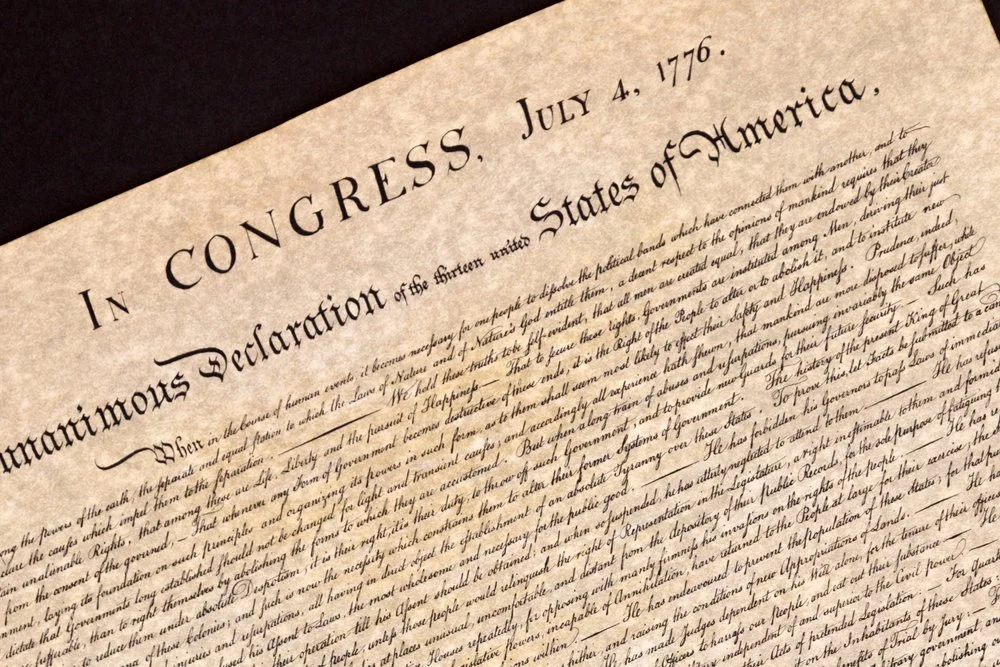 In CONGRESS, July 4, 1776.
unanimous Declaration of the thirteen united States of America,
When in the Course of human events, it becomes necessary for one people to dissolve the political bands which have connected them with another, and to
ong the powers of the earth, the separate and equal station to which the Laws of Nature and of Nature's God entitle them, a decent respect to the opinions of mankind requires that they
the causes which impel them to the separation. — We hold these truths to be self-evident, that all men are created equal, that they are endowed by their Creator
unalienable Rights, that among these are Life, Liberty and the pursuit of Happiness. — That to secure these rights, Governments are instituted among Men, deriving their just
from the consent of the governed, — That whenever any Form of Government becomes destructive of these ends, it is the Right of the People to alter or to abolish it, and to institute new
nment, laying its foundation on such principles and organizing its powers in such form, as to them shall seem most likely to effect their Safety and Happiness. Prudence, indeed,
dictate that Governments long established should not be changed for light and transient causes; and accordingly all experience hath shewn, that mankind are more disposed to suffer, while
sufferable, than to right themselves by abolishing the forms to which they are accustomed. But when a long train of abuses and usurpations, pursuing invariably the same Object
to reduce them under absolute Despotism, it is their right, it is their duty, to throw off such Government, and to provide new Guards for their future security. — Such has
of these Colonies; and such is now the necessity which constrains them to alter their former Systems of Government. The history of the present King of Great
injuries and usurpations, all having in direct object the establishment of an absolute Tyranny over these States. To prove this, let Facts be submitted to a
his Assent to Laws, the most wholesome and necessary for the public good. — He has forbidden his Governors to pass Laws of
their operation till his Assent should be obtained; and when so suspended, he has utterly neglected to attend to them. — He has
of people, unless those people would relinquish the right of Representation in the Legislature, a right inestimable to them and
at places unusual, uncomfortable, and distant from the depository of their public Records, for the sole purpose of fatiguing
Houses repeatedly, for opposing with manly firmness his invasions on the rights of the people. — He has
powers, incapable of Annihilation, have returned to the People at large for their exercise; the
within. — He has endeavoured to prevent the population of these States; for that
and raising the conditions of new Appropriations of Lands. — He
made Judges dependent on his Will alone, for the tenure of their
Officers to harrass our people, and eat out their substance. —
independent of and superior to the Civil power.
Acts of pretended Legislation: — For
on the Inhabitants of these States
of Trial by Jury: